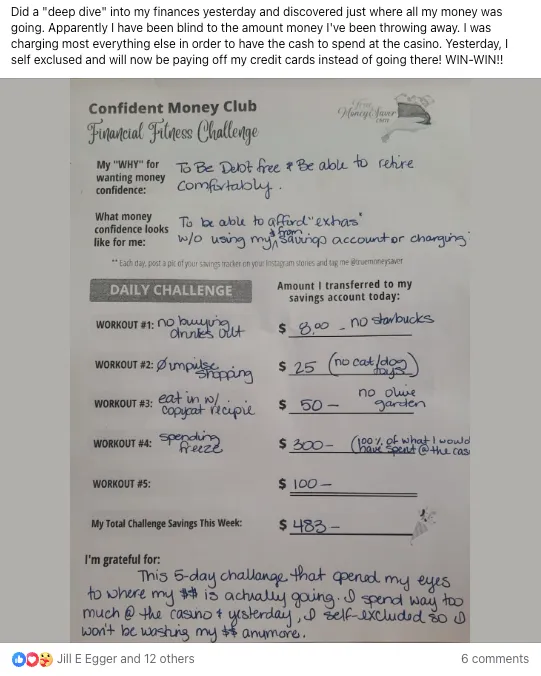 Did a "deep dive" into my finances yesterday and discovered just where all my money was
going. Apparently I have been blind to the amount money I've been throwing away. I was
charging most everything else in order to have the cash to spend at the casino. Yesterday, I
self excluded and will now be paying off my credit cards instead of going there! WIN-WIN!!
Confident Money Club
Financial Fitness Challenge
Money Saver
My "WHY" for
wanting money
confidence:
To Be Debt free & Be able to retire
comfortably.
What money
confidence looks
like for me:
To be able to afford "extras"
w/o using my $ from savings account or charging
** Each day, post a pic of your savings tracker on your Instagram stories and tag me @truemoneysaver
DAILY CHALLENGE
Amount I transferred to my
savings account today:
WORKOUT #1: no buying
drinks out
$ 8.00 - no starbucks
WORKOUT #2: Ø impulse
shopping
$ 25 (no cat/dog
toys)
WORKOUT #3: eat in w/
copycat recipie
$ 50 - no olive
garden
WORKOUT #4: spending
freeze
$ 300 - (100% of what I would
have spent @ the cas
WORKOUT #5:
$ 100 -
My Total Challenge Savings This Week:
$ 483 -
I'm grateful for:
This 5-day challange that opened my eyes
to where my $$ is actually going. I spend way too
much @ the casino & yesterday, I self-excluded so I
won't be wasting my $$ anymore.
Jill E Egger and 12 others
6 comments